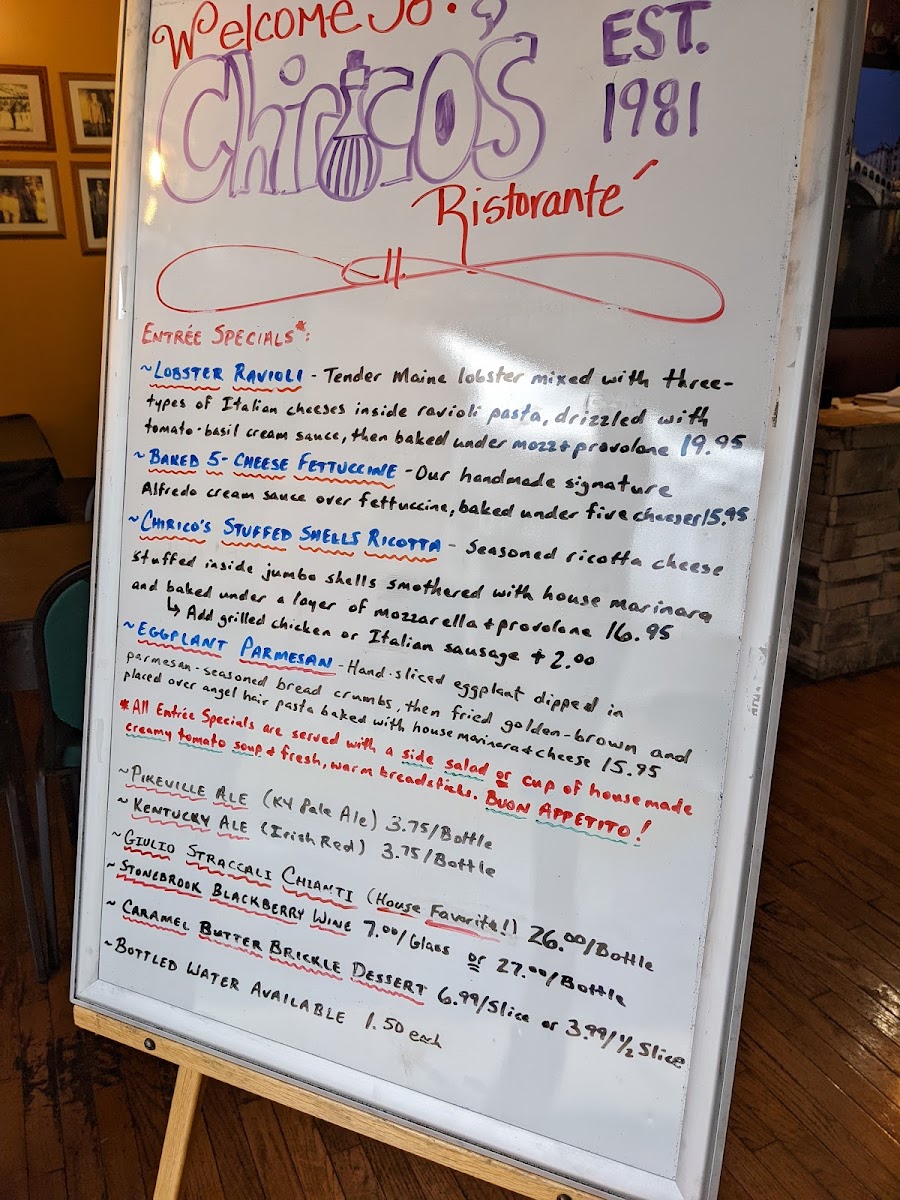 Welcome To:
Chirico's
EST.
1981
Ristoranté
ENTRÉE SPECIALS*:
~LOBSTER RAVIOLI - Tender Maine lobster mixed with three-
types of Italian cheeses inside ravioli pasta, drizzled with
tomato-basil cream sauce, then baked under mozz + provolone 19.95
~BAKED 5-CHEESE FETTUCCINE - Our handmade signature
Alfredo cream sauce over fettuccine, baked under five cheeses 15.95
~CHIRICO'S STUFFED SHELLS RICOTTA - Seasoned ricotta cheese
stuffed inside jumbo shells smothered with house marinara
and baked under a layer of mozzarella + provolone 16.95
↳ Add grilled chicken or Italian sausage + 2.00
~EGGPLANT PARMESAN - Hand-sliced eggplant dipped in
parmesan-seasoned bread crumbs, then fried golden-brown and
placed over angel hair pasta baked with house marinara + cheese 15.95
*All Entrée Specials are served with a side salad or cup of housemade
creamy tomato soup + fresh, warm breadsticks. BUON APPETITO!
~PIKEVILLE ALE (KY Pale Ale) 3.75/Bottle
~KENTUCKY ALE (Irish Red) 3.75/Bottle
~GIULIO STRACCALI CHIANTI (House Favorite!) 26.00/Bottle
~STONEBROOK BLACKBERRY WINE 7.00/Glass or 27.00/Bottle
~CARAMEL BUTTER BRICKLE DESSERT 6.99/Slice or 3.99/½ Slice
~BOTTLED WATER AVAILABLE 1.50 each